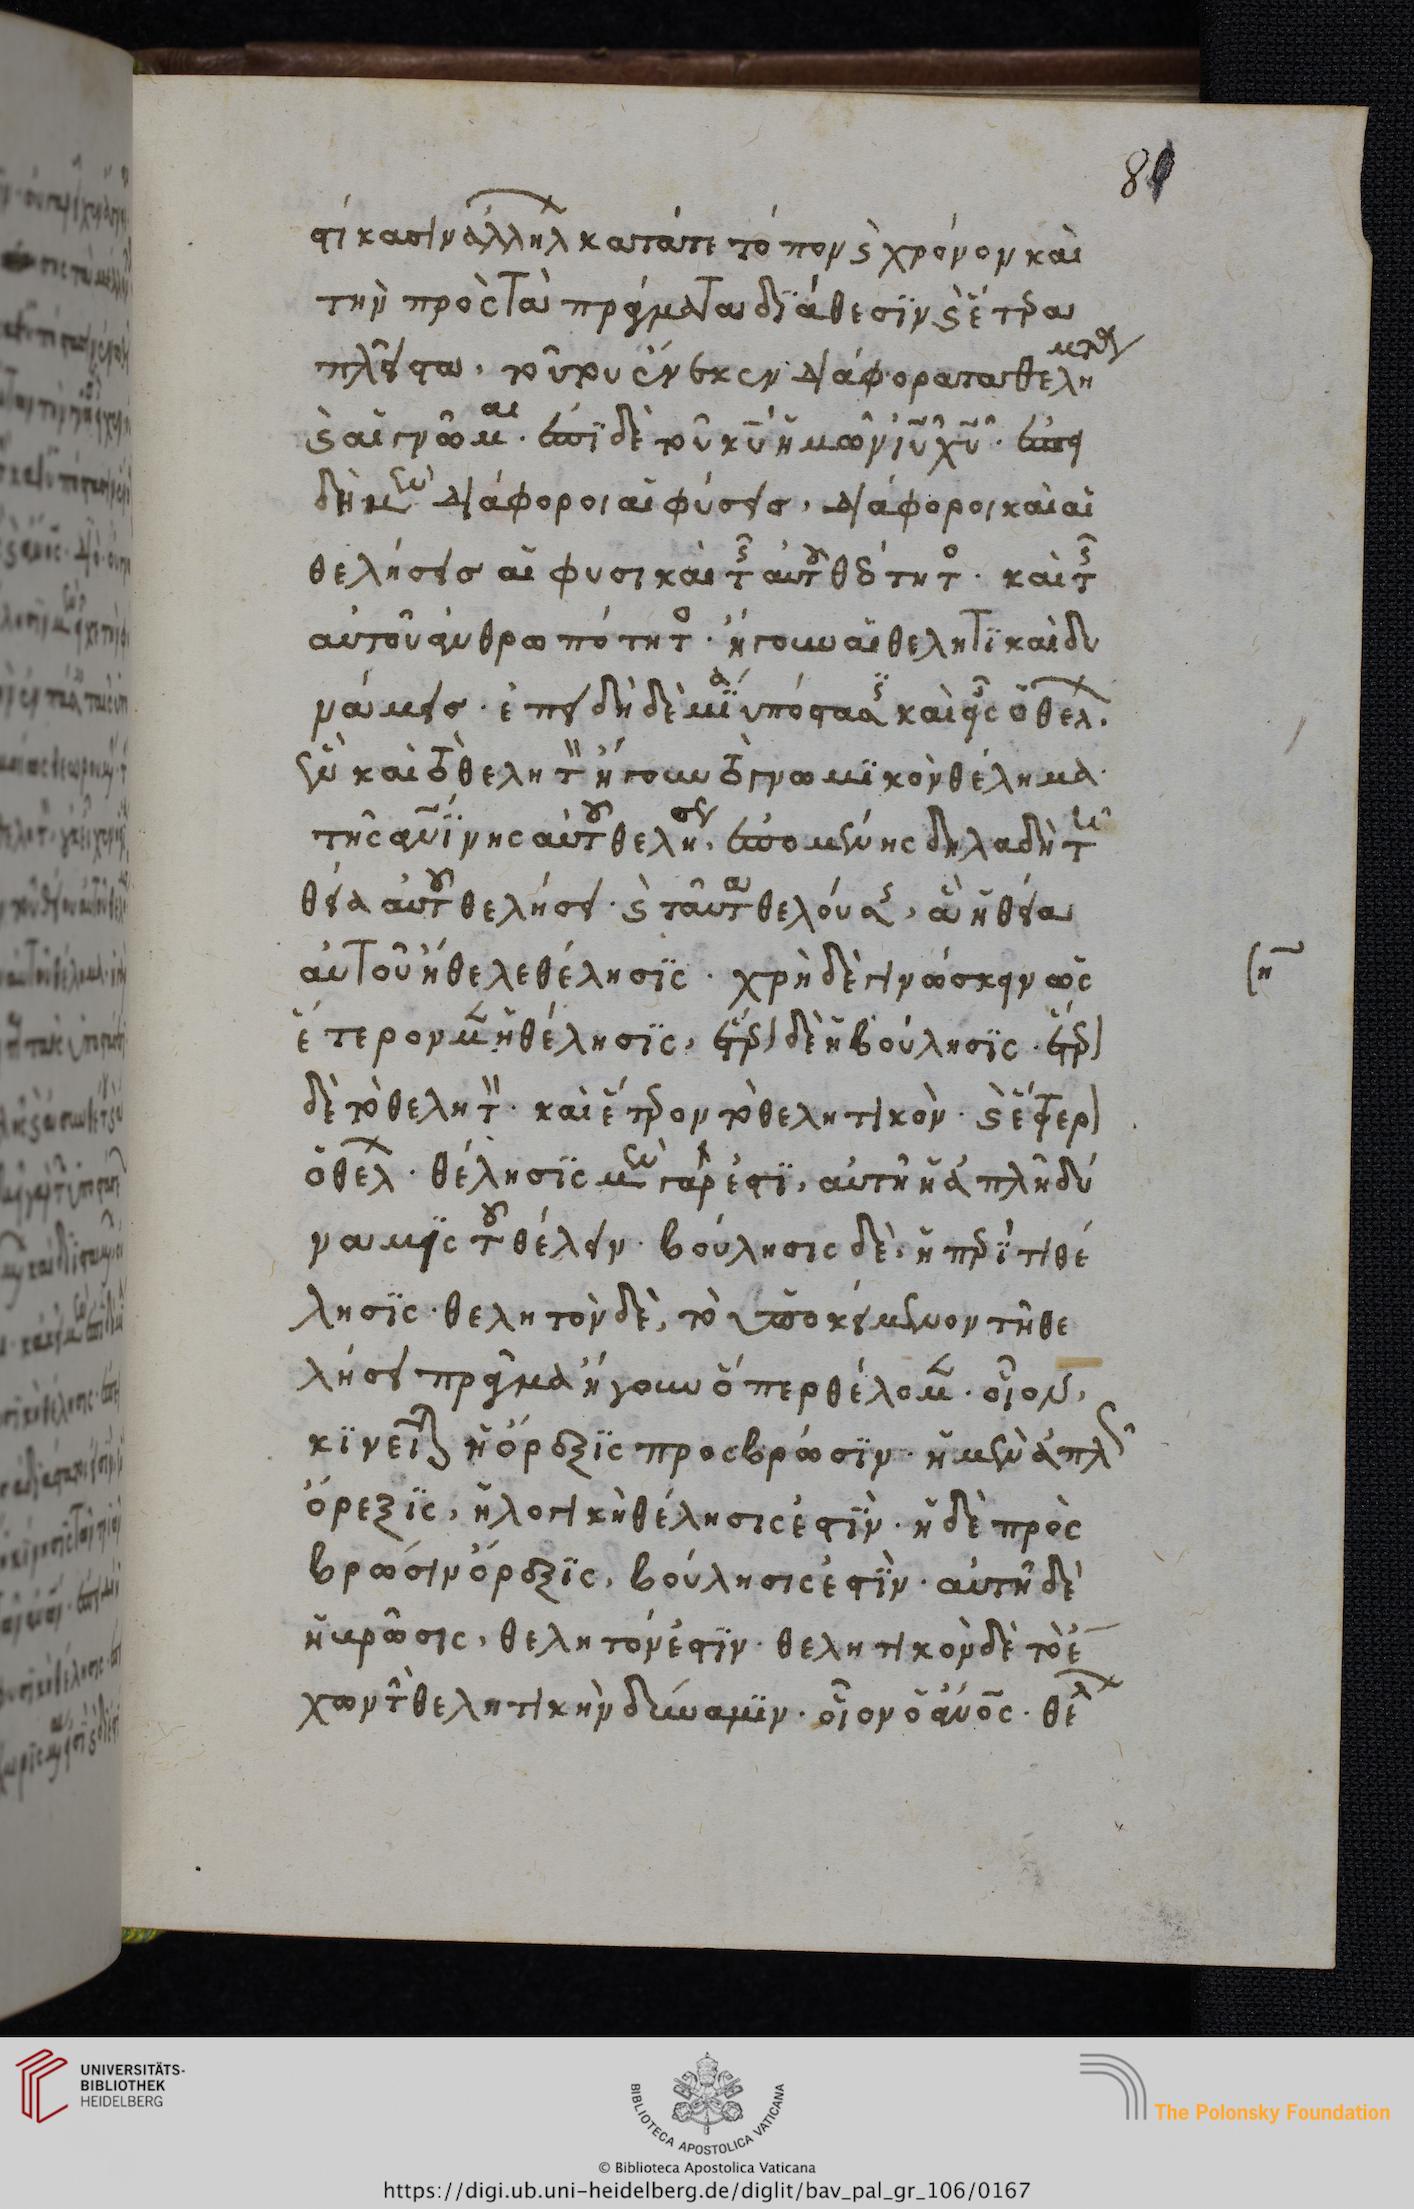 81
στήκασιν ἀλλήλ κατάτε τόπον ϛ χρόνον καὶ
τὴν πρὸς τὰ πράγματα διάθεσϊν ϛ ἕτερα
πλεῖστα, τούτου ἕνεκεν διάφορα τὰ θελήματα
ϛ αἱ γνῶμαι. ἐπϊ δὲ τοῦ κυ ἡμῶν ιυ χυ. ἐπει
δὴ μὲν διάφοροι αἱ φύσεις, διάφοροι καὶ αἱ
θελήσεις αἱ φυσικαὶ τῆς αὐτοῦ θεότητος. καὶ τῆς
αὐτοῦ ἀνθρωπότητος. ἤγουν αἱ θελητϊκαὶ δυ
νάμεις. ἐπειδὴ δὲ μϊα ὑπόστασις καὶ εἷς ὁ θέλων.
ἓν καὶ τὸ θελητὸν ἤγουν τὸ γνωμϊκὸν θέλημα.
τῆς ἀνϊνης αὐτοῦ θελήσεως. ἑπομένης δηλαδὴ τῇ
θεία αὐτοῦ θελήσει. ϛ ταῦτα θελούσης, ἃ ἡ θεία
αὐτοῦ ἤθελε θέλησϊς. χρὴ δὲ γινώσκειν ὡς
ἕτερον μέν ἡ θέλησϊς, ἕτερον δὲ ἡ βούλησϊς. ἕτερον
δὲ τὸ θελητόν. καὶ ἕτερον τὸ θελητικὸν. ϛ ἕτερον
ὁ θέλων. θέλησϊς μὲν γάρ ἐστϊ, αὐτὴ ἡ ἁπλῆ δύ
ναμϊς τοῦ θέλειν. βούλησις δὲ, ἡ περϊ τι θέ
λησϊς. θελητὸν δὲ, τὸ ὑποκείμενον τῆ θε
λήσει πρᾶγμα ἤγουν ὅπερ θέλομεν. οἷον,
κϊνεῖται ἡ ὄρεξϊς προς βρῶσϊν. ἡ μὲν ἁπλῶς
ὄρεξϊς, ἡ λογικὴ θέλησις ἐστϊν. ἡ δὲ πρὸς
βρῶσιν ὄρεξϊς, βούλησις ἐστϊν. αὐτὴ δὲ
ἡ βρῶσις, θελητόν ἐστϊν. θελητικὸν δὲ τὸ ἔ
χων τὴν θελητικὴν δύναμϊν. οἷον ὁ ἄνος. θέλων
UNIVERSITÄTS-
BIBLIOTHEK
HEIDELBERG
BIBLIOTHECA APOSTOLICA VATICANA
The Polonsky Foundation
© Biblioteca Apostolica Vaticana
https://digi.ub.uni-heidelberg.de/diglit/bav_pal_gr_106/0167